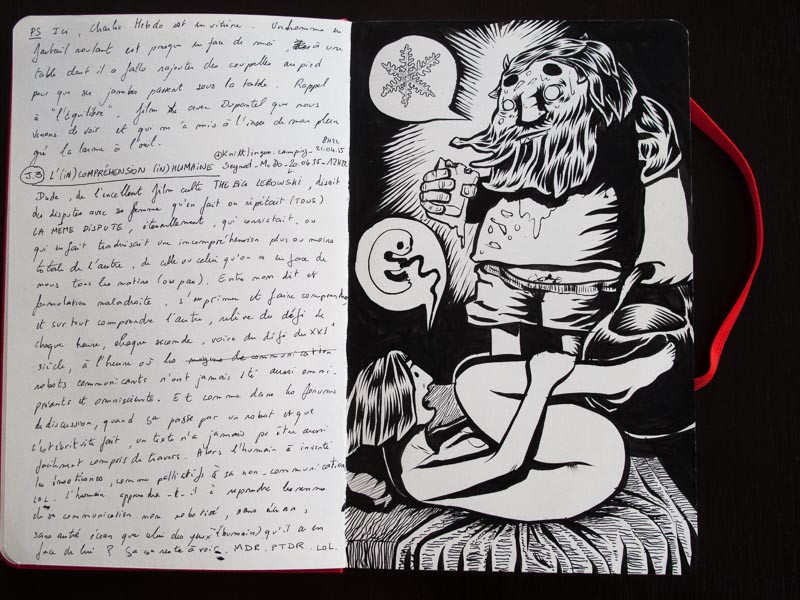 PS Ici, Charlie Hebdo est en vitrine. Un homme en
fauteuil roulant est presque en face de moi, à une
table dont il a fallu rajouter des coupelles au pied
pour que ses jambes passent sous la table. Rappel
à "l'Équilibre", film avec Dupontel que nous
venons de voir et qui m'a mis à l'insu de mon plein
gré la larme à l'œil.
8H22
21.04.15
Seynod - McDo - 20.04.15 - 17H22
J.3 L'(IN)COMPRÉHENSION (IN)HUMAINE
Dude, de l'excellent film culte THE BIG LEBOWSKI, disait
des disputes avec sa femme qu'en fait on répétait (TOUS)
LA MEME DISPUTE, éternellement, qui consistait, ou
qui en fait traduisait une incompréhension plus ou moins
totale de l'autre, de celle ou celui qu'on a en face de
nous tous les matins (ou pas). Entre non dit et
formulation maladroite, s'exprimer et faire comprendre
et surtout comprendre l'autre, relève du défi de
chaque heure, chaque seconde, voire du défi du XXIe
siècle, à l'heure où les moyens de communication
robots communicants n'ont jamais été aussi omni-
présents et omniscients. Et comme dans les forums
de discussion, quand ça passe par un robot et que
l'objectivité fait, un texte n'a jamais pu être aussi
facilement compris de travers. Alors l'humain a inventé
les émoticones, comme palliatifs à sa non-communication
LOL. L'humain apprendra-t-il à reprendre les rennes
de sa communication non robotisé, sans écran,
sans autre écran que celui des yeux (humain) qu'il a en
face de lui ? Ça ce reste à voir. MDR. PTDR. LOL.